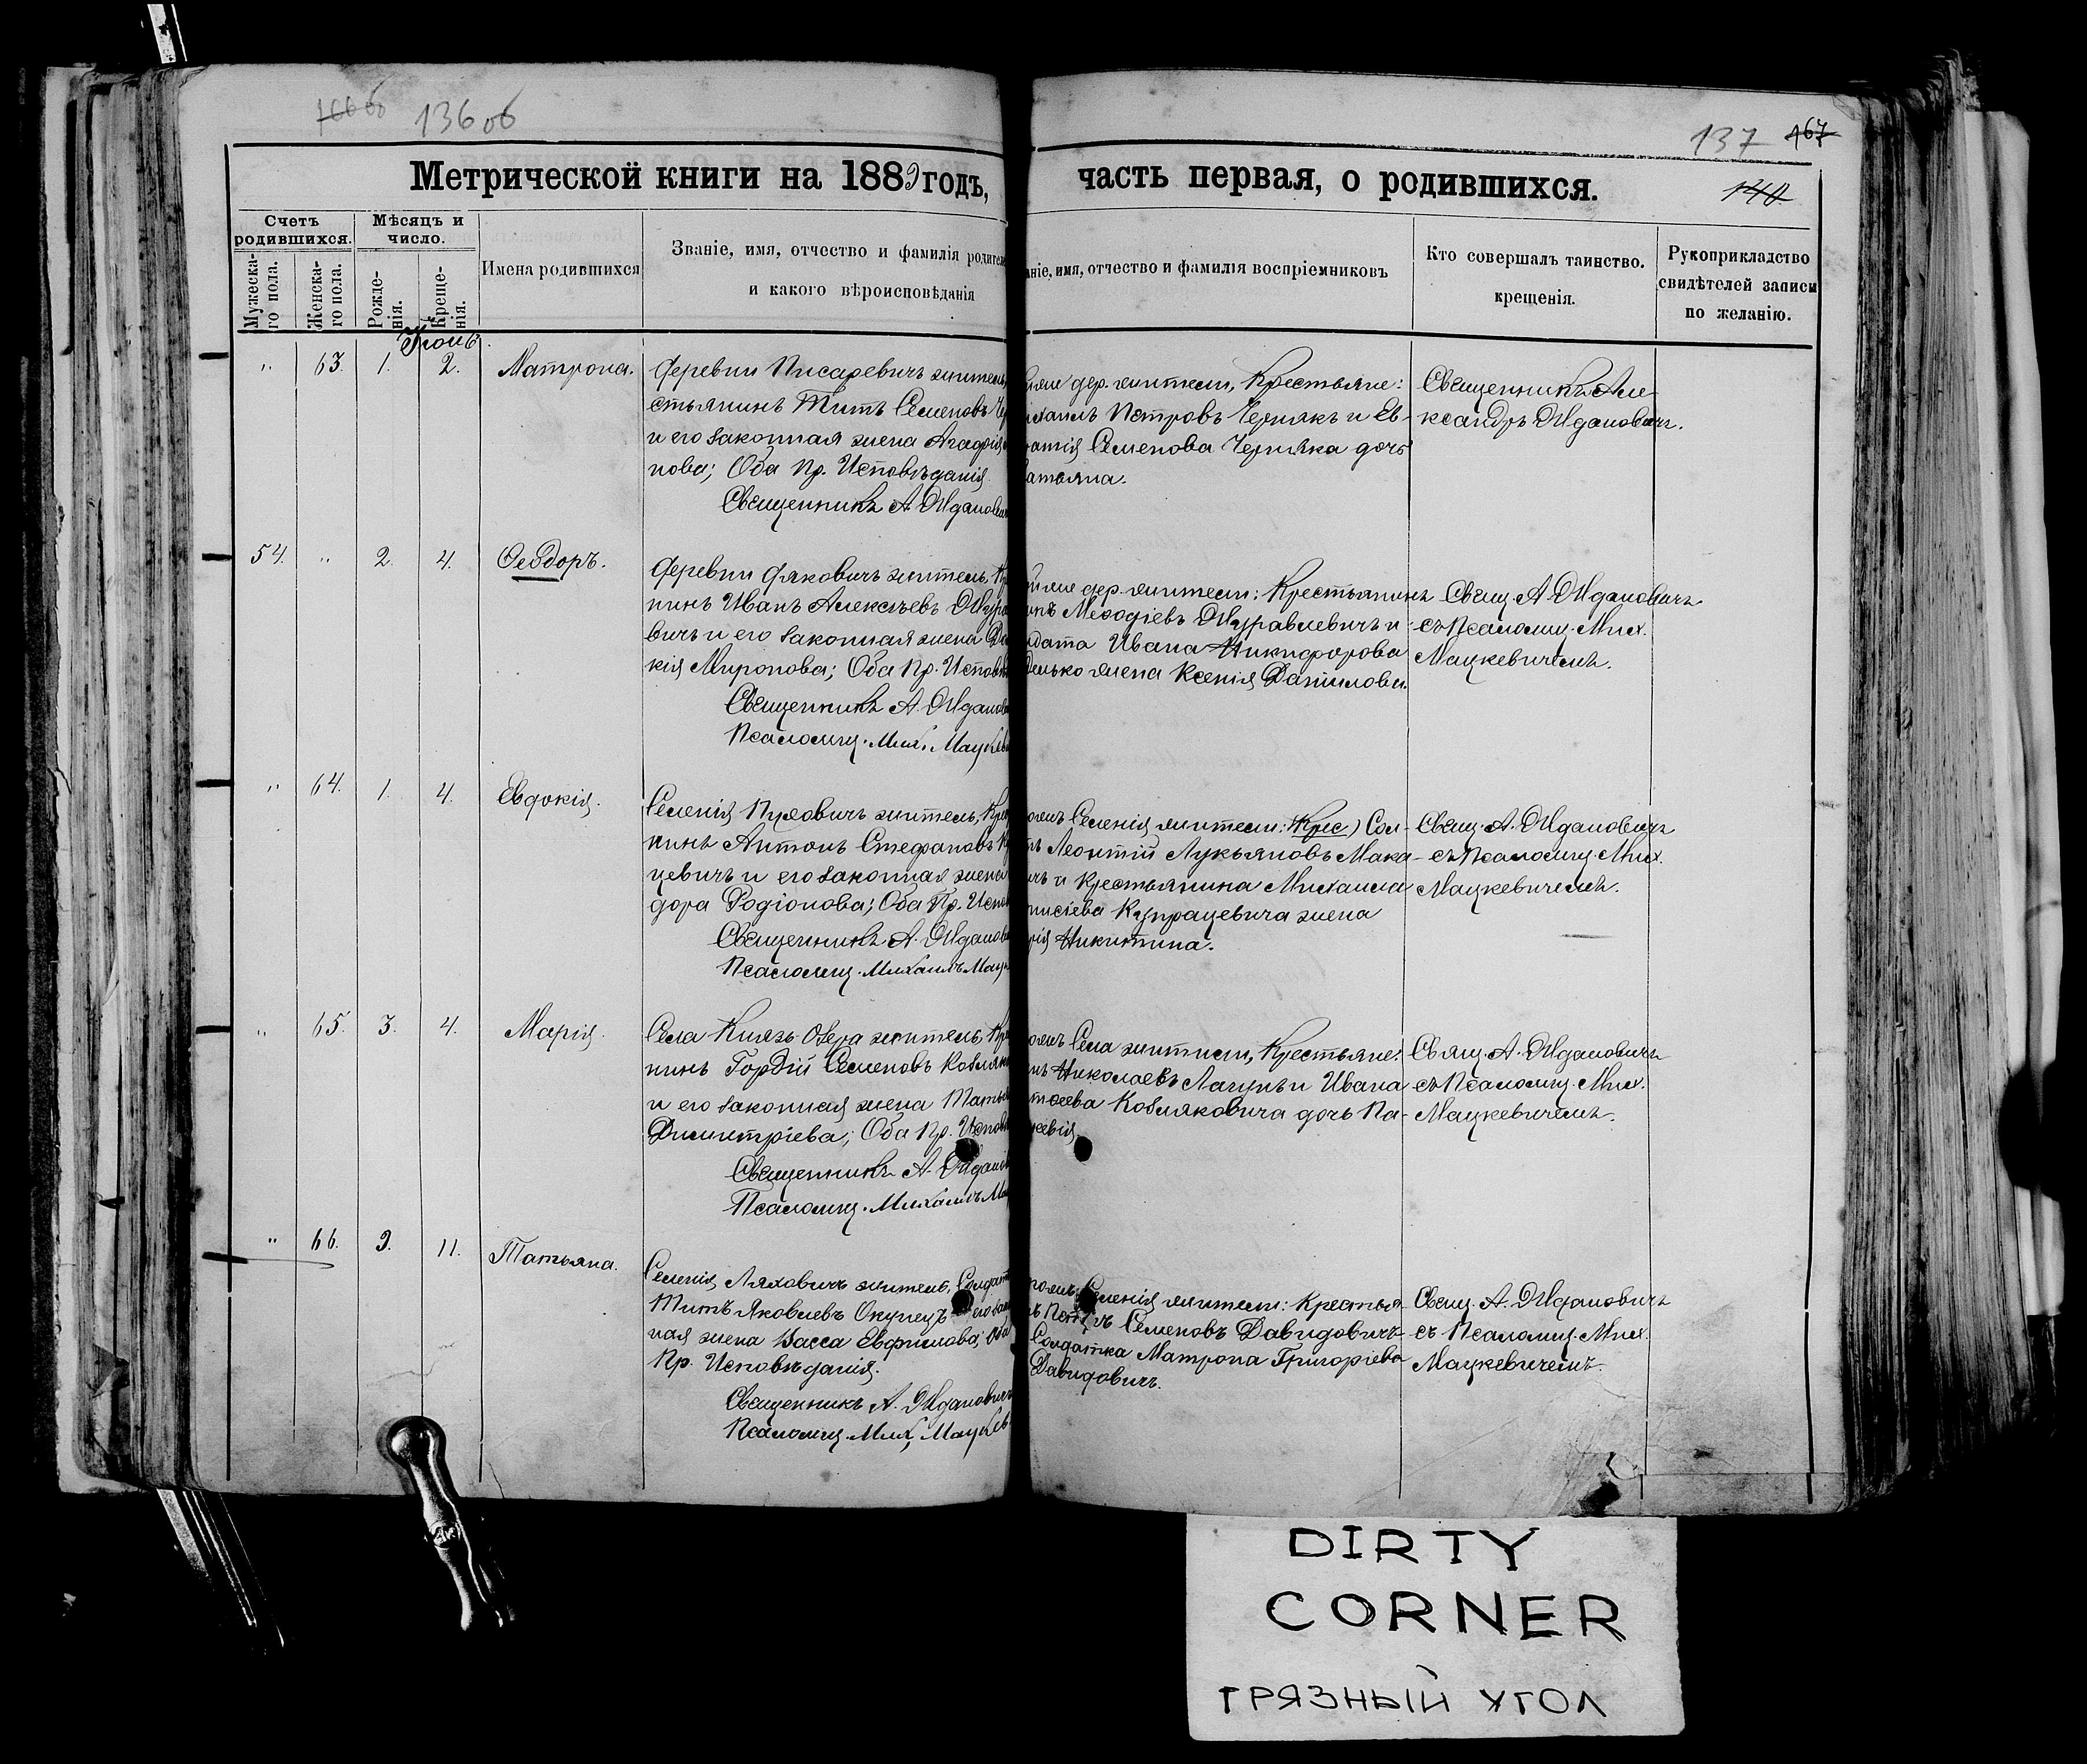 136 об
137
167
140
Метрической книги на 1889 годъ,
часть первая, о родившихся.
Счетъ родившихся.
Мѣсяцъ и число.
Мужеска-го пола.
Женска-го пола.
Рожде-нія.
Креще-нія.
Имена родившихся
Званіе, имя, отчество и фамилія родител
и какого вѣроисповѣданія
ніе, имя, отчество и фамилія воспріемниковъ
Кто совершалъ таинство.
крещенія.
Рукоприкладство
свидѣтелей записи
по желанію.
Іюнь
" 63. 1. 2. Матрона.
Деревни Писаревичъ житель
стьянинъ Титъ Семеновъ Че
и его законная жена Агафія
нова; Оба Пр. Исповѣданія.
Священникъ А. Жданович
дер. жители, Крестьяне:
ихаилъ Петровъ Чернякъ и Ев-
Семенова Черняка дочь
атьяна.
Священникъ Але
ксандръ Ждановичъ.
54. " 2. 4. Ѳеодоръ.
Деревни Дяковичъ житель, Кр
нинъ Иванъ Алексѣевъ Жура
вичъ и его законная жена
кія Миронова; Оба Пр. Исповѣ
Священникъ А. Жданов
Псаломщ. Мих. Мацкев
дер. жители: Крестьянинъ
Меѳодіевъ Журавлевичъ и
лдата Ивана Никифорова
жена Ксенія Данилова.
Свящ. А. Ждановичъ
съ Псаломщ. Мих.
Мацкевичемъ.
" 64. 1. 4. Евдокія.
Селенія Пуховичъ житель, Крес
нинъ Антонъ Стефановъ Ку
цевичъ и его законная жена
дора Родіонова; Оба Пр. Испов
Священникъ А. Жданов
Псаломщ. Михаилъ Мацк
Селенія жители: (Крес) Сол-
Леонтій Лукьяновъ Мака-
и крестьянина Михаила
Купрацевича жена
рія Никитина.
Свящ. А. Ждановичъ
съ Псаломщ. Мих.
Мацкевичемъ.
" 65. 3. 4. Марія.
Села Князь-Озера житель, Кре
нинъ Гордій Семеновъ Кобляк
и его законная жена Татья
Димитріева; Оба Пр. Исповѣ
Священникъ А. Ждано
Псаломщ. Михаилъ Ма
Села жители, Крестьяне:
Николаевъ Лагунъ и Ивана
Кобляковича дочь Па-
кевія.
Свящ. А. Ждановичъ
съ Псаломщ. Мих.
Мацкевичемъ.
" 66. 9. 11. Татьяна.
Селенія Ляховичъ житель, Солдат
Титъ Яковлевъ Окунецъ и его зак
ная жена Васса Евфимова; Оба
Пр. Исповѣданія.
Священникъ А. Ждановичъ
Псаломщ. Мих. Мацкев
Селенія жители: Крестья-
Петръ Семеновъ Давидовичъ
Солдатка Матрона Григоріева
Давидовичъ.
Свящ. А. Ждановичъ
съ Псаломщ. Мих.
Мацкевичемъ.
DIRTY
CORNER
ГРЯЗНЫЙ УГОЛ